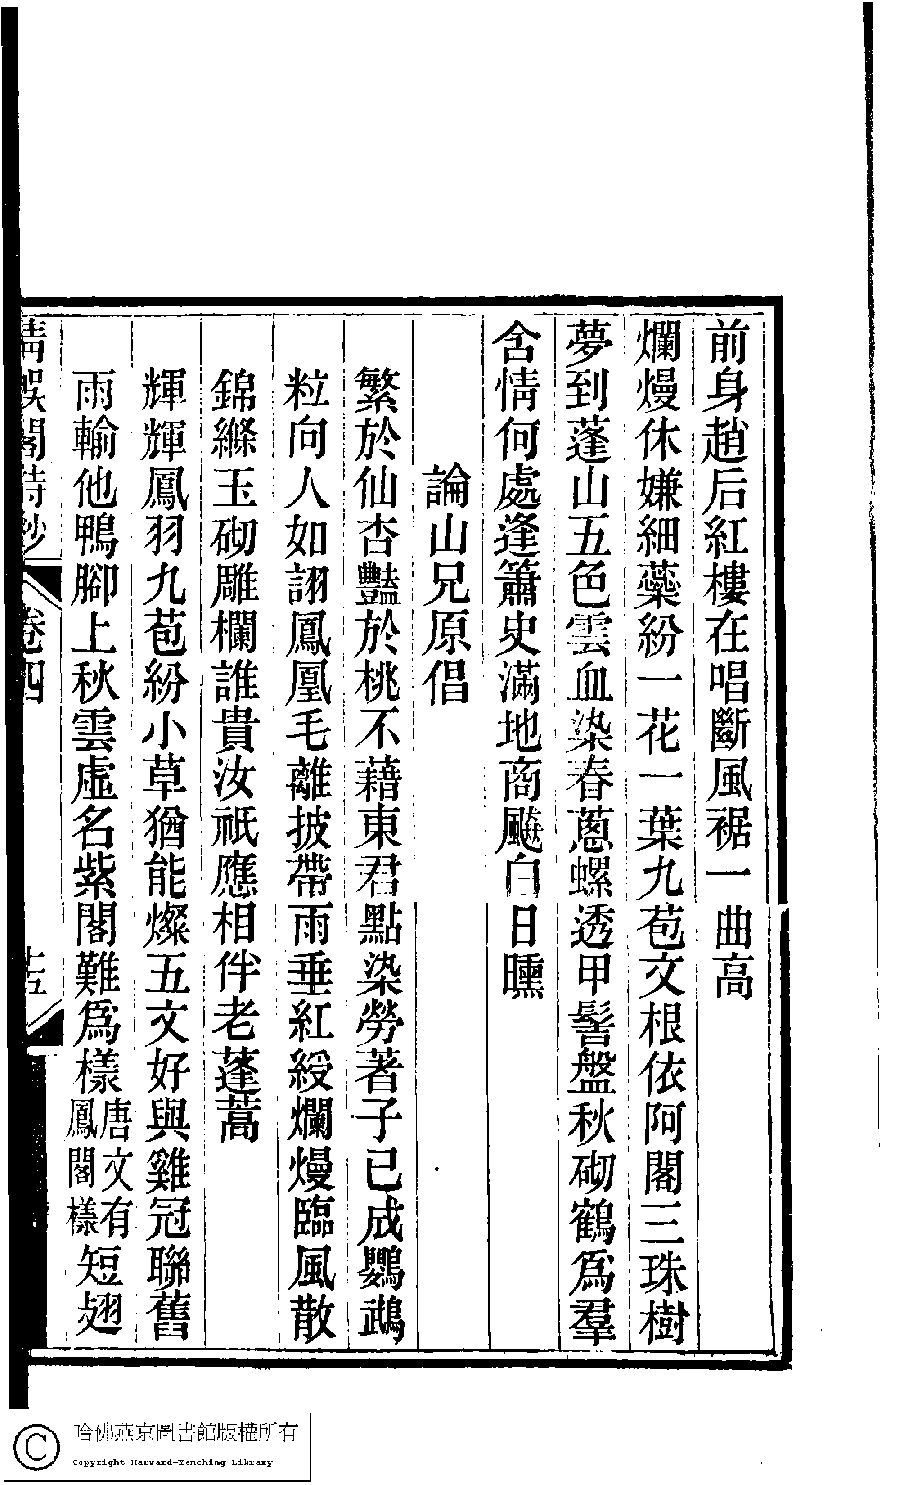 前身趙后紅樓在唱斷風裾一曲高
爛熳休嫌細蘂紛一花一葉九苞文根依阿閣三珠樹
夢到蓬山五色雲血染春蔥螺透甲髻盤秋砌鶴爲羣
含情何處逢簫史滿地商飈白日曛
論山兄原倡
繁於仙杏豔於桃不藉東君點染勞著子已成鸚鵡
粒向人如詡鳳凰毛離披帶雨垂紅綬爛熳臨風散
錦縧玉砌雕欄誰貴汝祇應相伴老蓬蒿
輝輝鳳羽九苞紛小草猶能燦五文好與雞冠聯舊
雨輸他鴨腳上秋雲虛名紫閣難爲樣唐文有鳳閣樣短翅
清娛閣詩鈔 卷四 十五
哈佛燕京圖書館版權所有
Copyright Harvard-Yenching Library